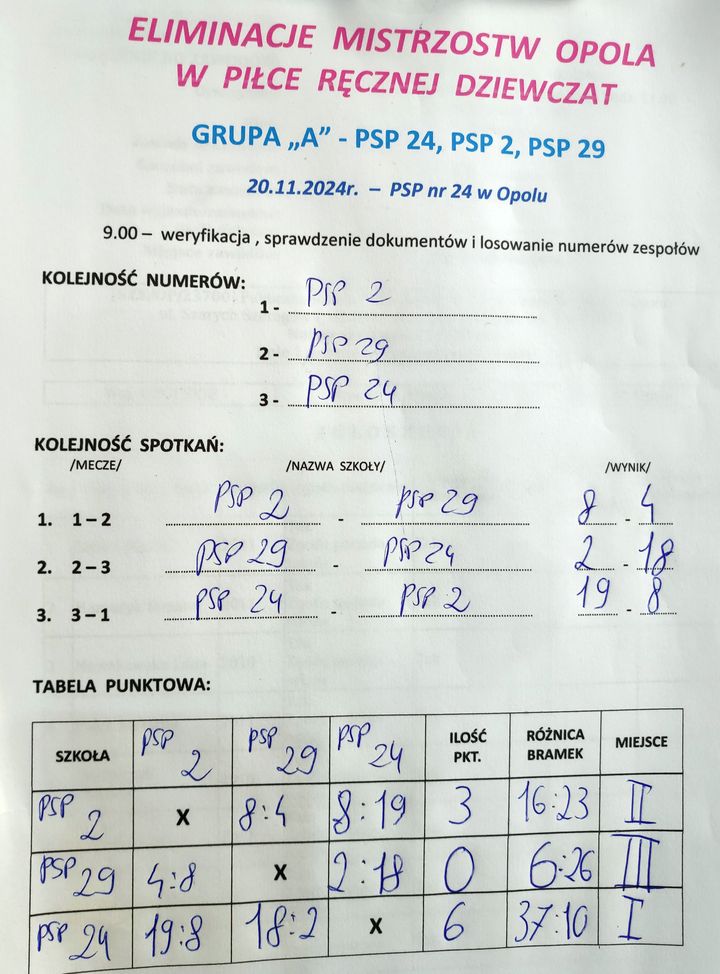 ELIMINACJE MISTRZOSTW OPOLA
W PIŁCE RĘCZNEJ DZIEWCZAT
GRUPA „A” - PSP 24, PSP 2, PSP 29
20.11.2024r. – PSP nr 24 w Opolu
9.00 – weryfikacja , sprawdzenie dokumentów i losowanie numerów zespołów
KOLEJNOŚĆ NUMERÓW:
1 - PSP 2
2 - PSP 29
3 - PSP 24
KOLEJNOŚĆ SPOTKAŃ:
/MECZE/ /NAZWA SZKOŁY/ /WYNIK/
1. 1 – 2 PSP 2 - PSP 29 8 - 4
2. 2 – 3 PSP 29 - PSP 24 2 - 18
3. 3 – 1 PSP 24 - PSP 2 19 - 8
TABELA PUNKTOWA:
SZKOŁA PSP 2 PSP 29 PSP 24 ILOŚĆ PKT. RÓŻNICA BRAMEK MIEJSCE
PSP 2 X 8:4 8:19 3 16:23 II
PSP 29 4:8 X 2:18 0 6:26 III
PSP 24 19:8 18:2 X 6 37:10 I